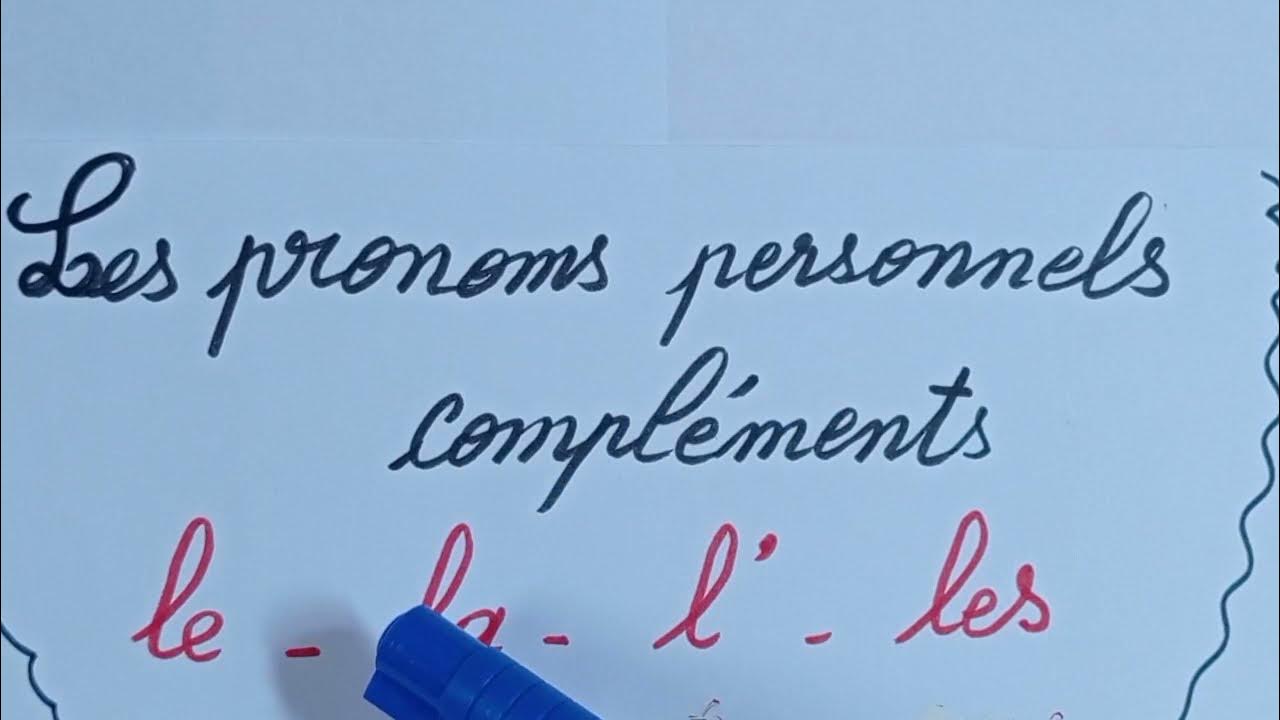 Les pronoms personnels
compléments
le - la - l' - les